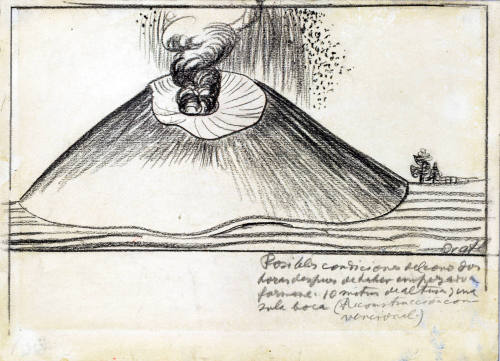 Dr. Atl
Posibles condiciones del cono dos
horas despues de haber empezado a
formarse. 10 metros de altura; una
sola boca (Reconstrucción con-
vencional.)